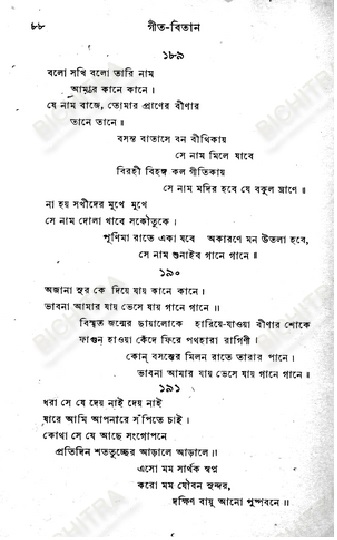 ৮৮ গীত-বিতান
১৮৯
বলো সখি বলো তারি নাম
আমার কানে কানে ।
যে নাম বাজে, তোমার প্রাণের বীণার
তানে তানে ॥
বসন্ত বাতাসে বন বীথিকায়
সে নাম মিলে যাবে
বিরহী বিহঙ্গ কল গীতিকায়
সে নাম মদির হবে যে বকুল ঘ্রাণে ॥
না হয় সখীদের মুখে মুখে
সে নাম দোলা খাবে সকৌতুকে ।
পূর্ণিমা রাতে একা যবে অকারণে মন উতলা হবে,
সে নাম শুনাইব গানে গানে ॥
১৯০
অজানা সুর কে দিয়ে যায় কানে কানে ।
ভাবনা আমার যায় ভেসে যায় গানে গানে ॥
বিস্মৃত জন্মের ছায়ালোকে হারিয়ে-যাওয়া বীণার শোকে
ফাগুন হাওয়া কেঁদে ফিরে পথহারা রাগিণী ।
কোন্ বসন্তের মিলন রাতে তারার পানে ।
ভাবনা আমার যায় ভেসে যায় গানে গানে ॥
১৯১
ধরা সে যে দেয় নাই দেয় নাই
যারে আমি আপনারে সঁপিতে চাই ।
কোথা সে যে আছে সংগোপনে
প্রতিদিন শততুচ্ছের আড়ালে আড়ালে ॥
এসো মম সার্থক স্বপ্ন
করো মম যৌবন সুন্দর,
দক্ষিণ বায়ু আনো পুষ্পবনে ॥
BICHITRA